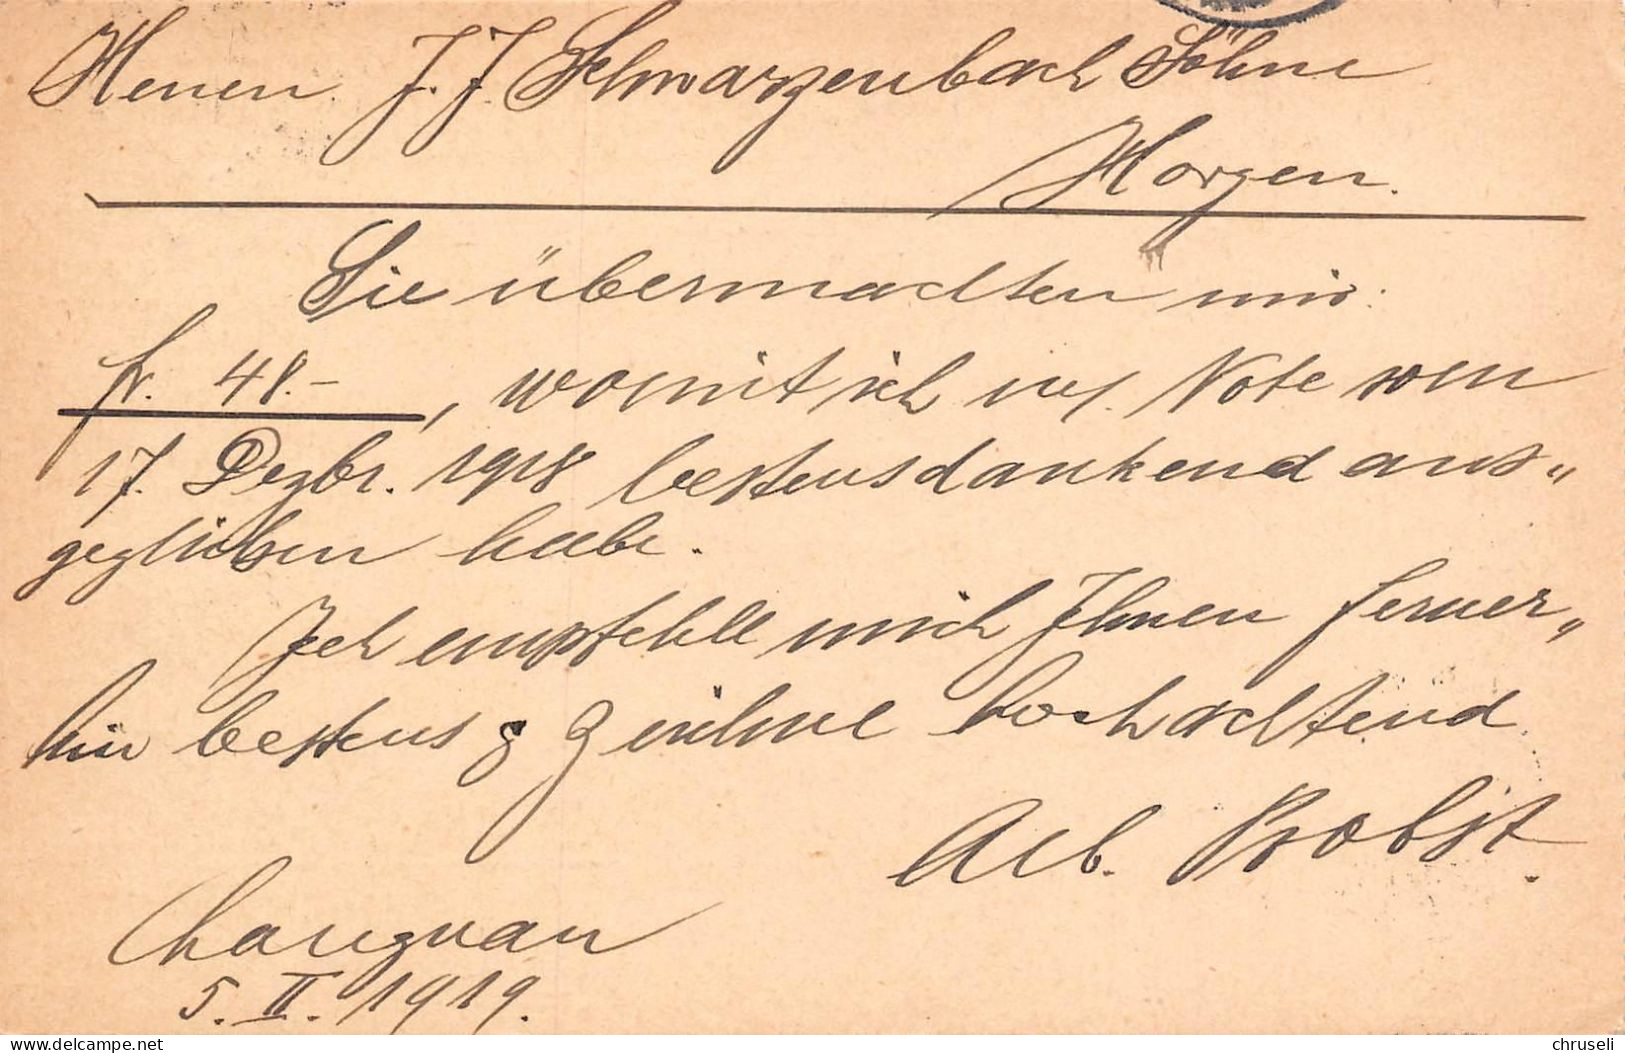 Herren J. J. Schwarzenbach Söhne
Horgen.
Sie übermachten mir
fr. 48.-, womit ich Note vom
17. Dezbr. 1918 bestens dankend aus„
geglichen habe.
Ich empfehle mich Ihnen ferner„
hin bestens & zeichne hochachtend
Alb. Probst.
Langnau
5. II. 1919.
delcampe.net
chruseli